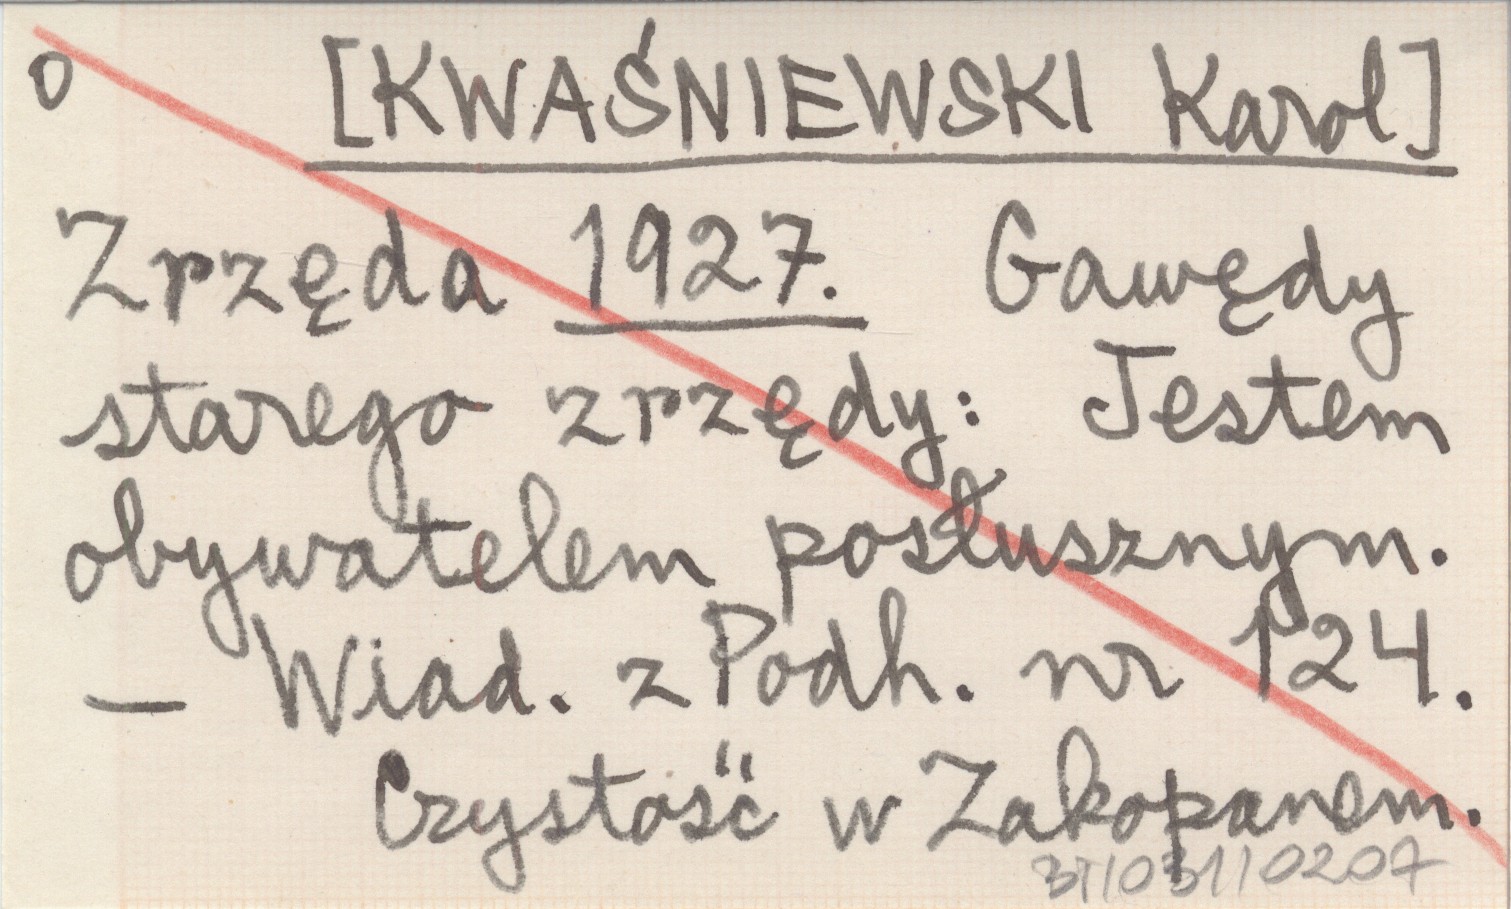 o [KWAŚNIEWSKI Karol]
Zrzęda 1927. Gawędy
starego zrzędy: Jestem
obywatelem posłusznym.
— Wiad. z Podh. nr 124.
Czystość w Zakopanem.
3T/031/0207